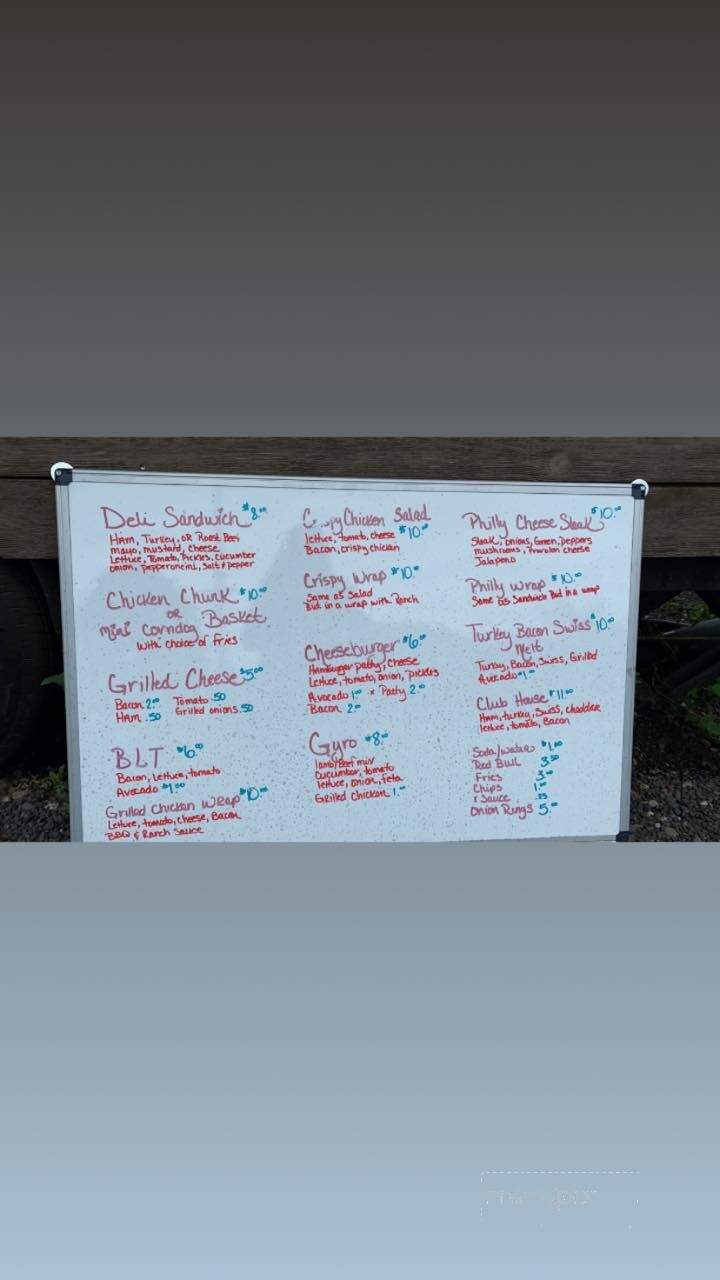 Deli Sandwich $8.00
Ham, Turkey, OR Roast Beef
mayo, mustard, cheese
Lettuce, Tomato, Pickles, cucumber
onion, pepperoncini, Salt & pepper
Chicken Chunk $10.00
OR
mini corndog Basket
with choice of fries
Grilled Cheese $5.00
Bacon 2.00 Tomato .50
HAM .50 Grilled onions .50
BLT $6.00
Bacon, Lettuce, tomato
Avocado $1.00
Grilled Chicken Wrap $10.00
Lettuce, tomato, cheese, Bacon
BBQ & Ranch Sauce
Chicken Salad
lettuce, tomato, cheese $10.00
Bacon, crispy chicken
Crispy Wrap $10.00
Same as Salad
But in a wrap with Ranch
Cheeseburger $6.00
Hamburger patty, cheese
Lettuce, tomato, onion, pickles
Avocado 1.00 x Patty 2.00
Bacon 2.00
Gyro $8.00
lamb/Beef mix
cucumber, tomato
lettuce, onion, feta
Grilled Chicken 1.00
Philly Cheese Steak $10.00
Steak, onions, Green, peppers
mushrooms, Provolon cheese
Jalapeno
Philly wrap $10.00
Same as Sandwich But in a wrap
Turkey Bacon Swiss $10.00
Melt
Turkey, Bacon, Swiss, Grilled
Avocado $1.00
Club House $11.00
Ham, turkey, Swiss, cheddar
lettuce, tomato, Bacon
Soda/water $1.00
Red Bull 3.50
Fries 3.00
Chips 1.00
x Sauce .25
Onion Rings 5.00